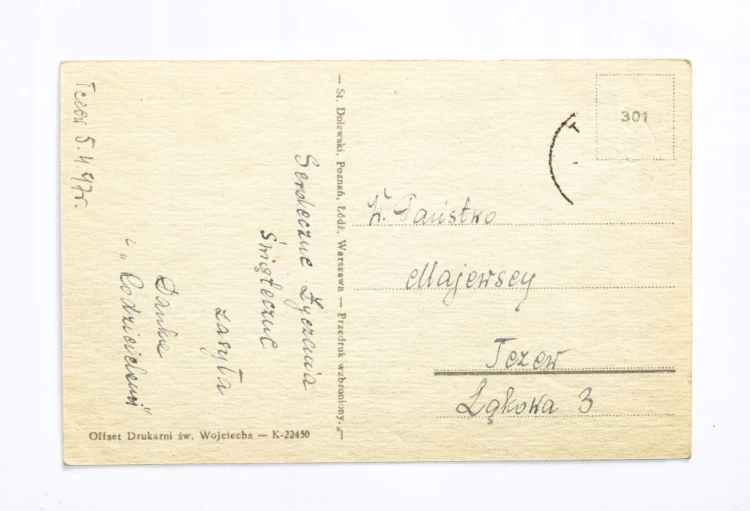 Tczew 5.4.47r.
Serdeczne Życzenia
Świąteczne
zasyła
Danka
z „Rodzicielami”
Offset Drukarni św. Wojciecha — K-22450
— St. Dolewski, Poznań, Łódź, Warszawa — Przedruk wzbroniony. —
301
T
W. Państwo
Majewscy
Tczew
Łąkowa 3